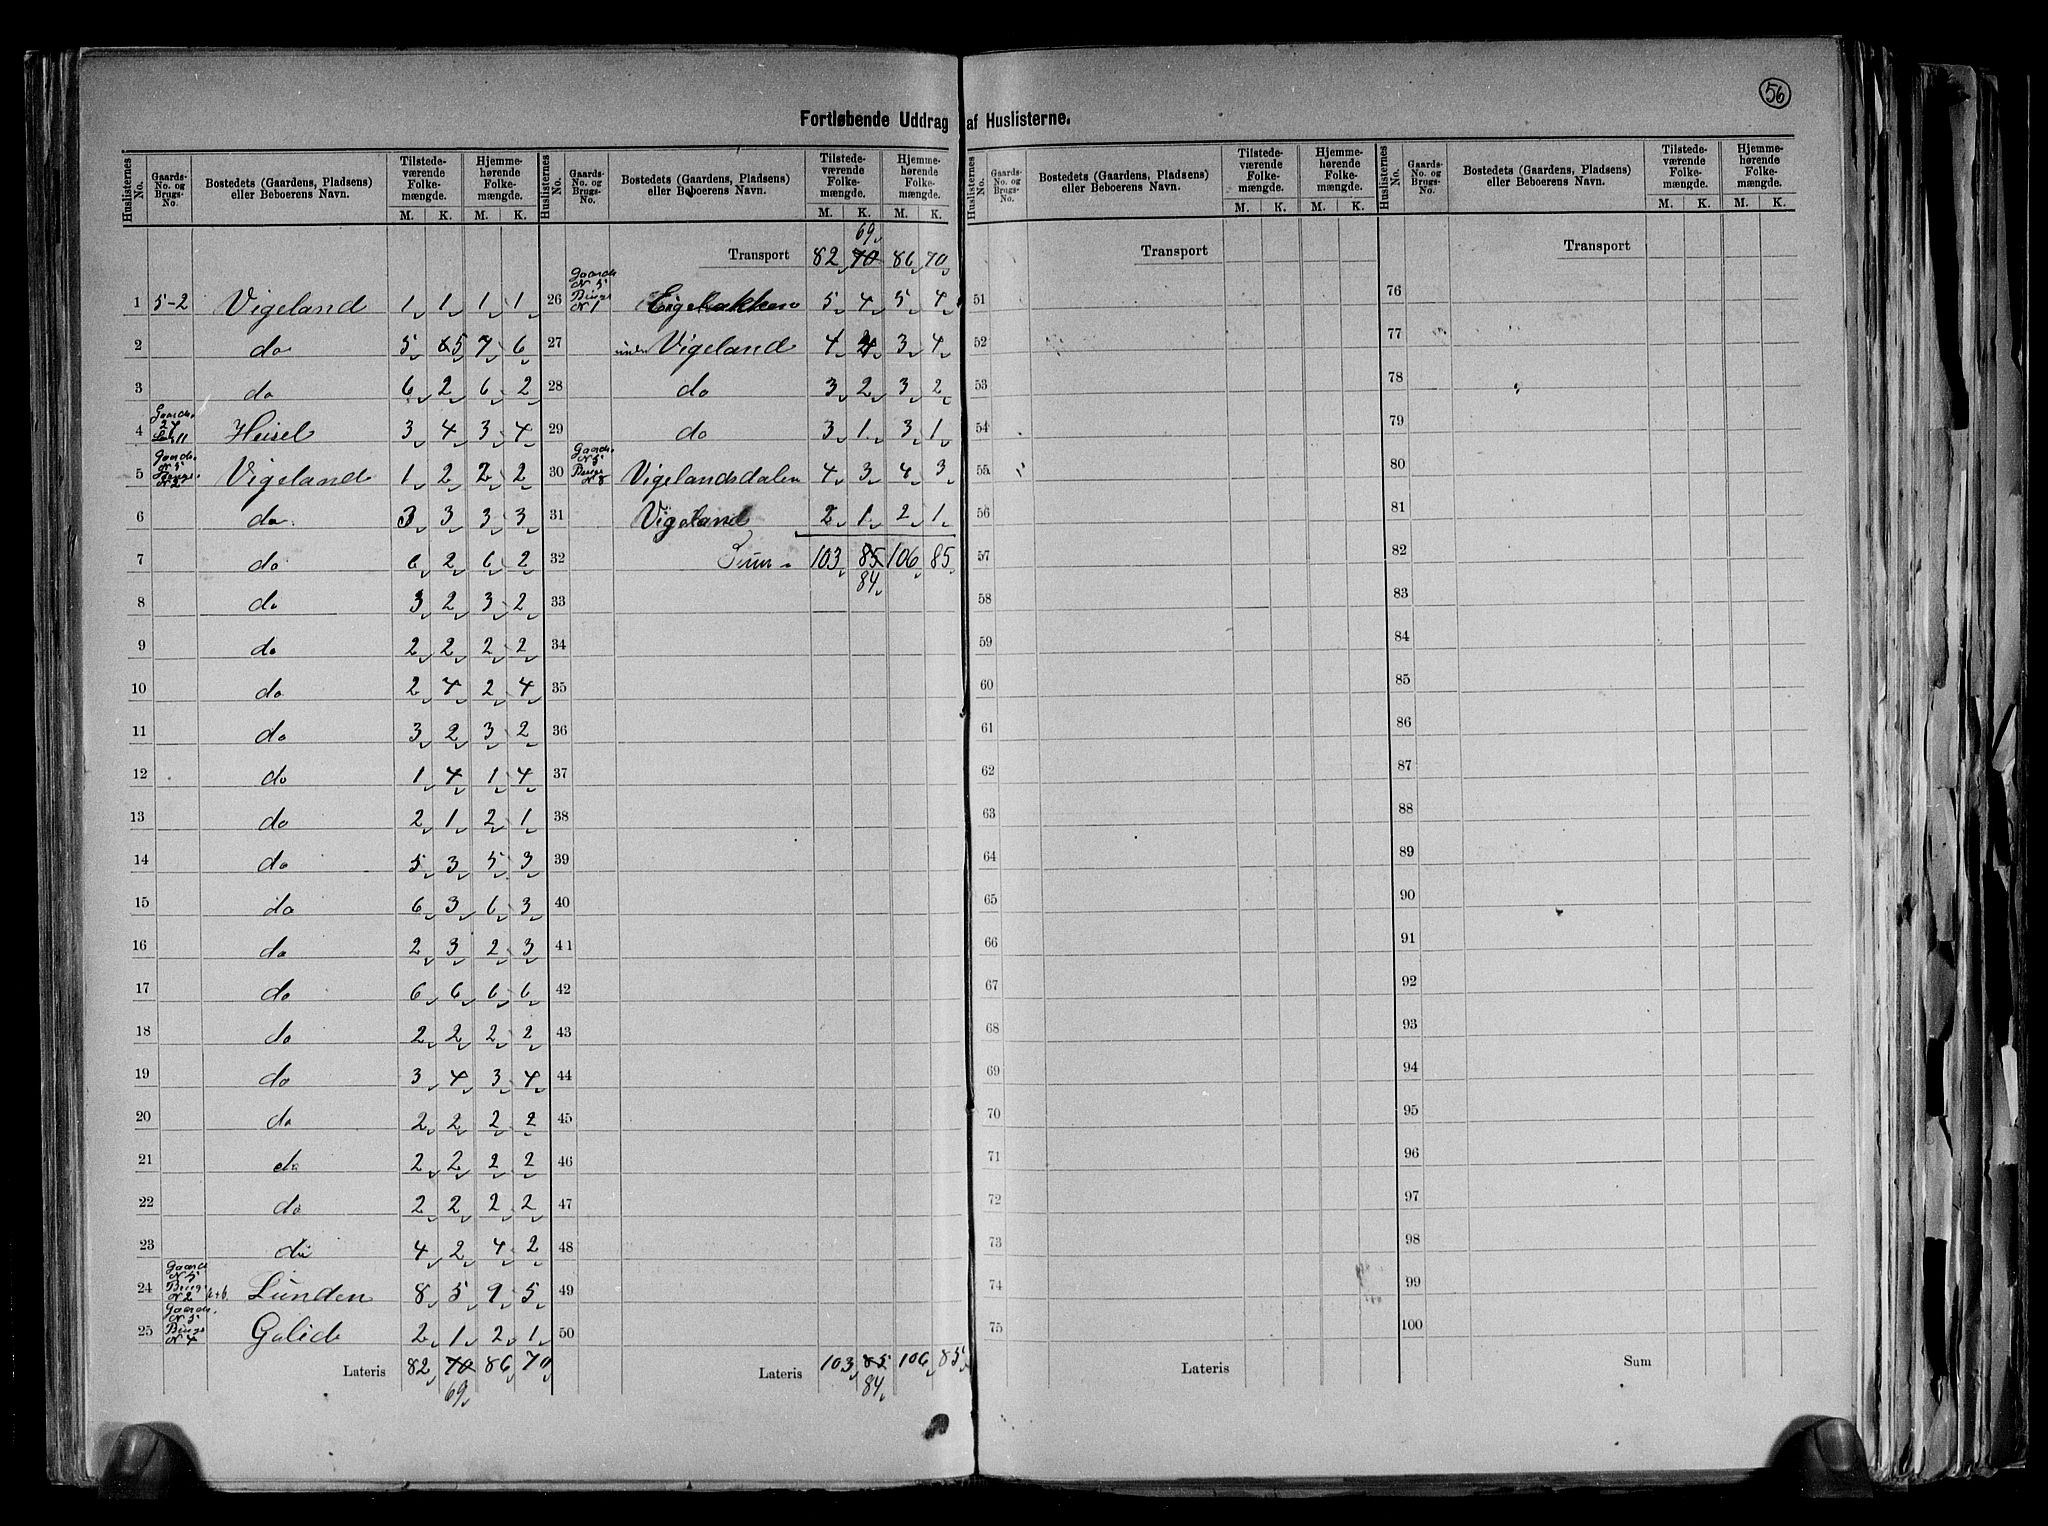 56
Fortløbende Uddrag af Huslisterne.
Huslisternes No. | Gaards-No. og Brugs-No. | Bostedets (Gaardens, Pladsens) eller Beboerens Navn. | Tilstedeværende Folkemængde. M. K. | Hjemmehørende Folkemængde. M. K.
1 5-2 Vigeland 1 1 1 1
2 do 5 5 7 6
3 do 6 2 6 2
4 Gaards. 24 11 Heisel 3 4 3 4
5 Gaards. N 5 N 2 Vigeland 1 2 2 2
6 do 3 3 3 3
7 do 6 2 6 2
8 do 3 2 3 2
9 do 2 2 2 2
10 do 2 4 2 4
11 do 3 2 3 2
12 do 1 4 1 4
13 do 2 1 2 1
14 do 5 3 5 3
15 do 6 3 6 3
16 do 2 3 2 3
17 do 6 6 6 6
18 do 2 2 2 2
19 do 3 4 3 4
20 do 2 2 2 2
21 do 2 2 2 2
22 do 2 2 2 2
23 do 4 2 4 2
24 Gaards N 5 Brugs N 2 Lunden 8 5 9 5
25 Gaards. N 5 Brugs N 4 2 1 2 1
Lateris 82 70 86 70
69
Huslisternes No. | Gaards-No. og Brugs-No. | Bostedets (Gaardens, Pladsens) eller Beboerens Navn. | Tilstedeværende Folkemængde. M. K. | Hjemmehørende Folkemængde. M. K.
69
Transport 82 70 86 70
26 Gaards N 5 Brugs N 1 5 4 5 4
27 under Vigeland 4 4 3 4
28 do 3 2 3 2
29 do 3 1 3 1
30 Gaards. N 5 Brugs N 8 Vigelandsdalen 4 3 4 3
31 Vigeland 2 1 2 1
32 Sum 103 85 106 85
84
33
34
35
36
37
38
39
40
41
42
43
44
45
46
47
48
49
50
Lateris 103 85 106 85
84
Huslisternes No. | Gaards-No. og Brugs-No. | Bostedets (Gaardens, Pladsens) eller Beboerens Navn. | Tilstedeværende Folkemængde. M. K. | Hjemmehørende Folkemængde. M. K.
Transport
51
52
53
54
55
56
57
58
59
60
61
62
63
64
65
66
67
68
69
70
71
72
73
74
75
Lateris
Huslisternes No. | Gaards-No. og Brugs-No. | Bostedets (Gaardens, Pladsens) eller Beboerens Navn. | Tilstedeværende Folkemængde. M. K. | Hjemmehørende Folkemængde. M. K.
Transport
76
77
78
79
80
81
82
83
84
85
86
87
88
89
90
91
92
93
94
95
96
97
98
99
100
Sum